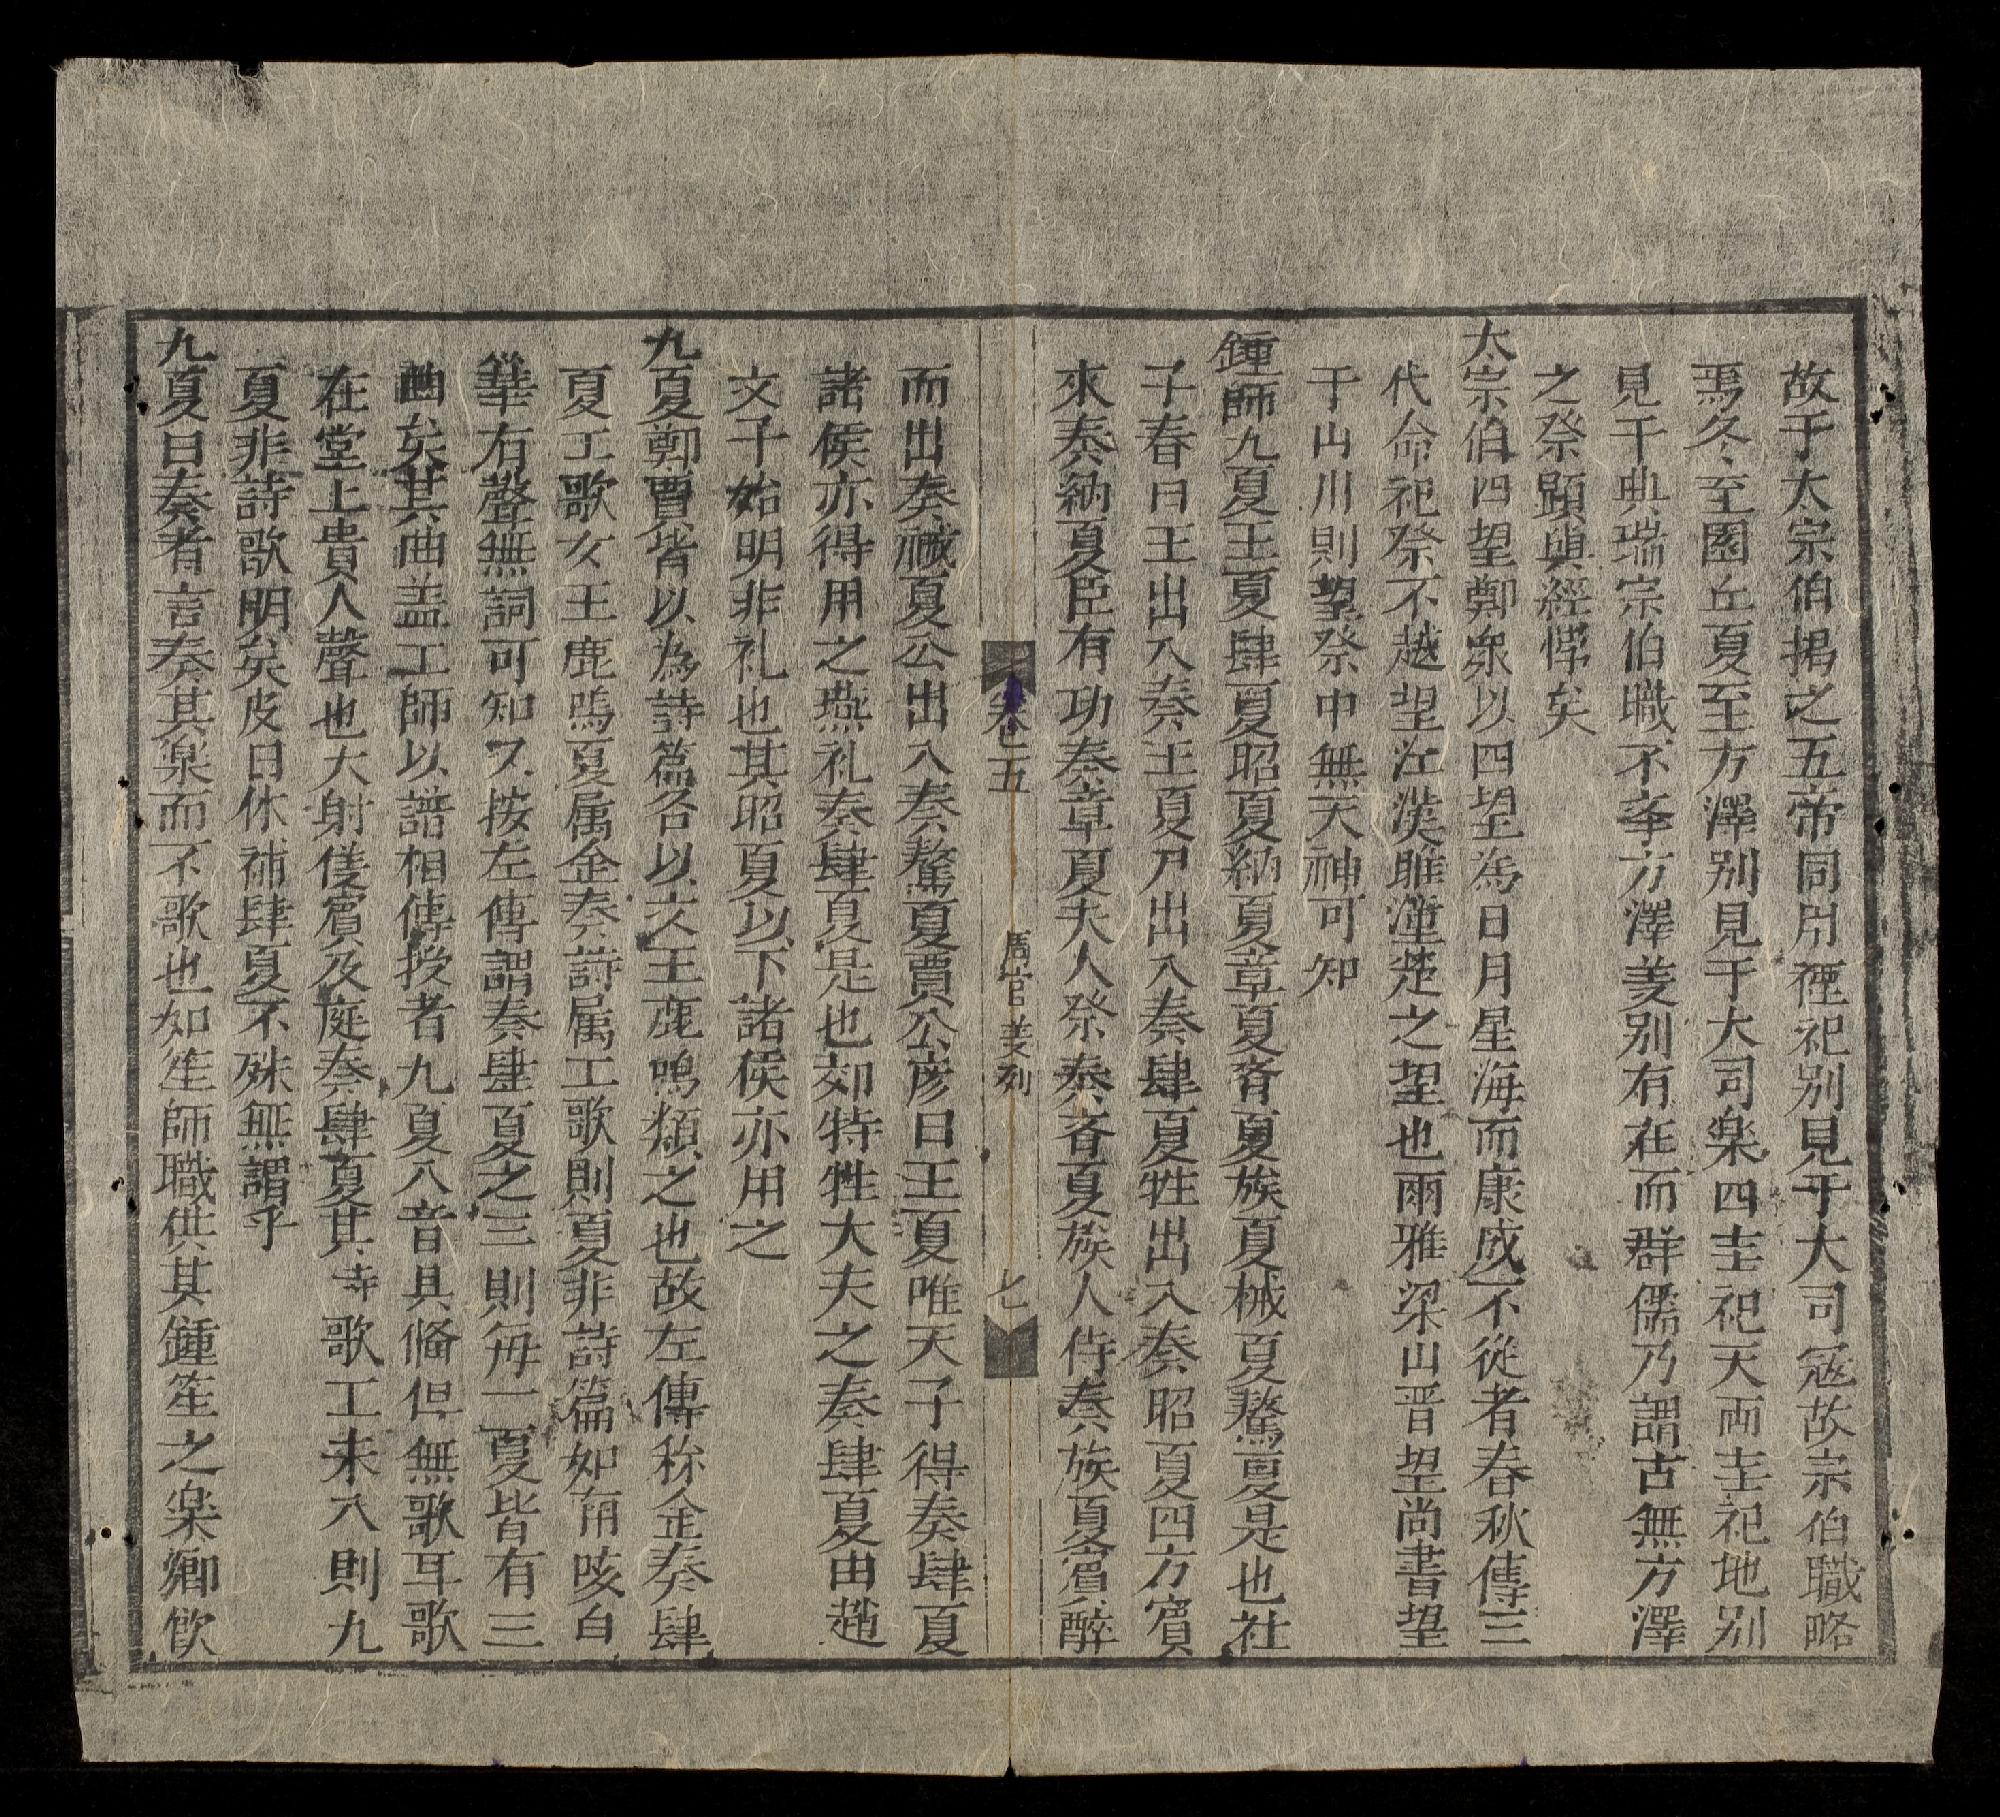 故于太宗伯揭之五帝同用禋祀别見于大司寇故宗伯職略
焉冬至圜丘夏至方澤别見于大司楽四圭祀天両圭祀地别
見于典瑞宗伯職不夆方澤羙别有在而群儒乃謂古無方澤
之祭顕與經悖矣
太宗伯四望鄭衆以四望為日月星海而康成不從者春秋傳三
代命祀祭不越望江漢雎漳楚之望也爾雅梁山晋望尚書望
于山川則望祭中無天神可知
鍾師九夏王夏肆夏昭夏納夏章夏斉夏族夏械夏驁夏是也社
子春曰王出入奏王夏尸出入奏肆夏牲出入奏昭夏四方賓
來奏納夏臣有功奏章夏夫人祭奏斉夏族人侍奏族夏賓醉
卷五 周官 羙列 七
而出奏祴夏公出入奏驁夏賈公彦曰王夏唯天子得奏肆夏
諸侯亦得用之燕礼奏肆夏是也郊特牲大夫之奏肆夏由趙
文子始明非礼也其昭夏以下諸侯亦用之
九夏鄭賈皆以為詩篇各以文王鹿鳴類之也故左傳称金奏肆
夏工歌文王鹿鳴夏属金奏詩属工歌則夏非詩篇如南咳白
華有聲無詞可知又按左傳謂奏肆夏之三則毎一夏皆有三
曲矣其曲盖工師以譜相傳授者九夏八音具俻但無歌耳歌
在堂上貴人聲也大射儀賓及庭奏肆夏其寺歌工未入則九
夏非詩歌明矣皮日休補肆夏不殊無謂乎
九夏曰奏者言奏其楽而不歌也如笙師職供其鍾笙之楽卿飲